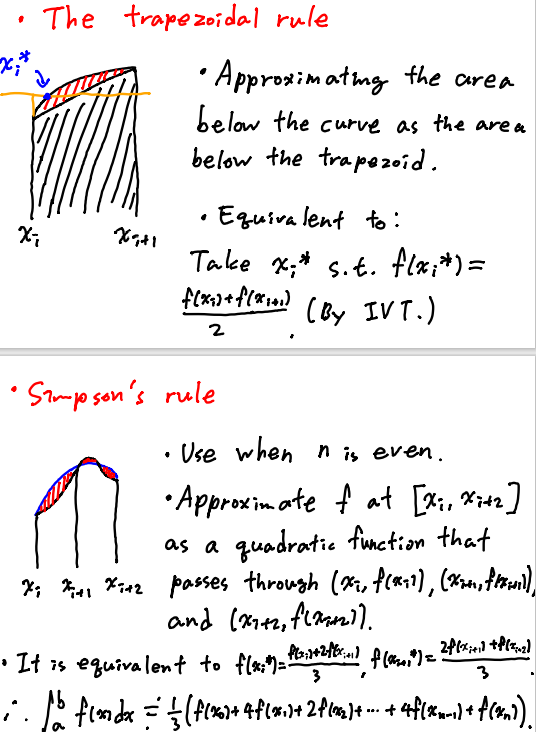 • The trapezoidal rule
xᵢ*
• Approximating the area
below the curve as the area
below the trapezoid.
xᵢ xᵢ₊₁
• Equivalent to:
Take xᵢ* s.t. f(xᵢ*) =
(f(xᵢ)+f(xᵢ₊₁))/2. (By IVT.)
• Simpson's rule
• Use when n is even.
• Approximate f at [xᵢ, xᵢ₊₂]
as a quadratic function that
xᵢ xᵢ₊₁ xᵢ₊₂
passes through (xᵢ, f(xᵢ)), (xᵢ₊₁, f(xᵢ₊₁)),
and (xᵢ₊₂, f(xᵢ₊₂)).
• It is equivalent to f(xᵢ*)=(f(xᵢ)+2f(xᵢ₊₁))/3, f(xᵢ₊₁*)=(2f(xᵢ₊₁)+f(xᵢ₊₂))/3.
∴ ∫ₐᵇ f(x)dx ≒ 1/3(f(x₀)+4f(x₁)+2f(x₂)+⋯+4f(xₙ₋₁)+f(xₙ)).